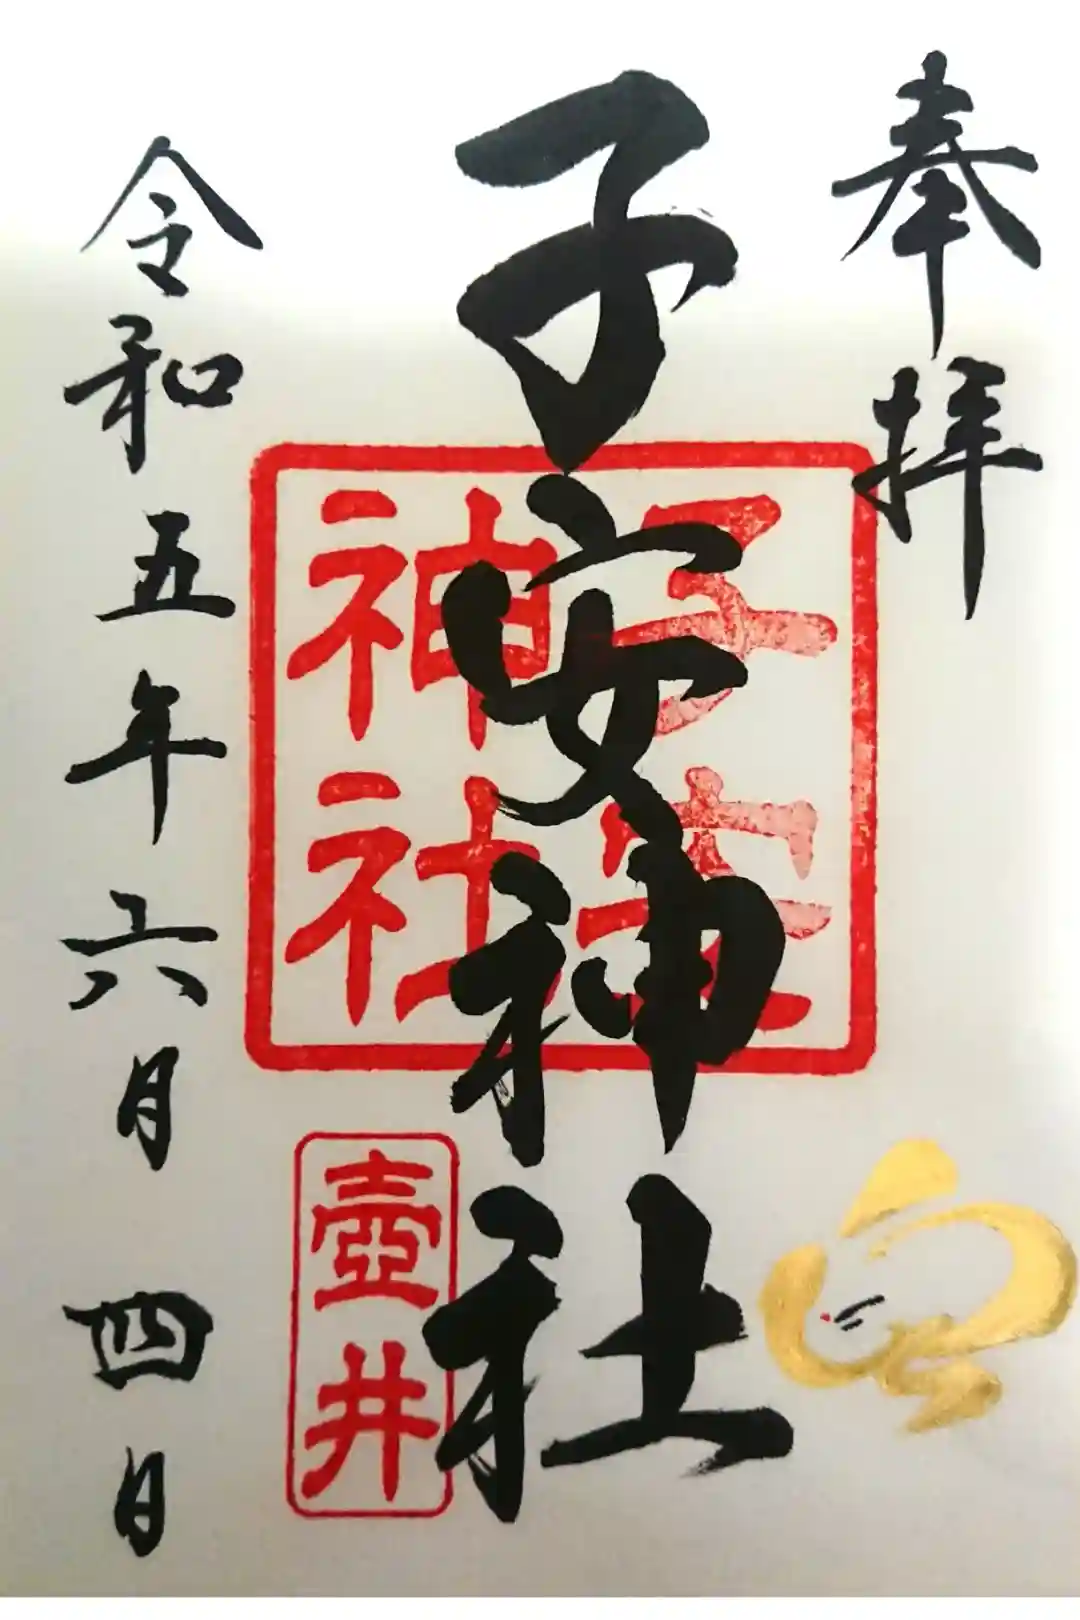 奉拝
子安神社
子安
神社
壺井
令和五年六月四日